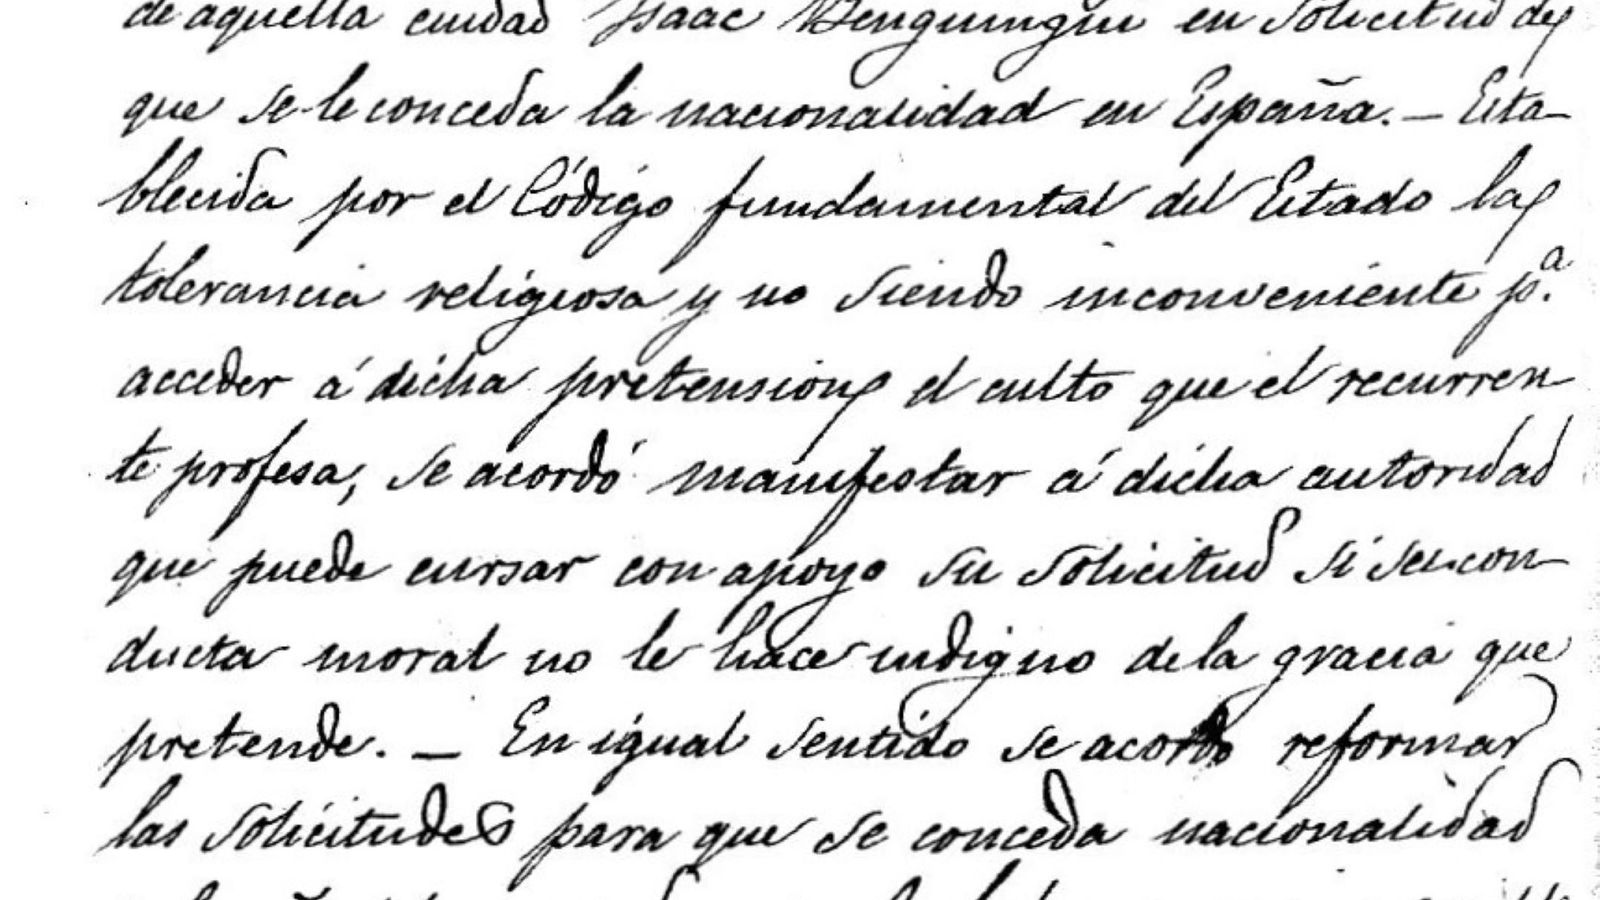 de aquella ciudad Isaac Benguingui en solicitud de
que se le conceda la nacionalidad en España. — Esta-
blecida por el Código fundamental del Estado la
tolerancia religiosa y no siendo inconveniente p.ª
acceder á dicha pretension el culto que el recurren
te profesa, se acordó manifestar á dicha autoridad
que puede cursar con apoyo su solicitud si su con-
ducta moral no le hace indigno de la gracia que
pretende. — En igual sentido se acordo reformar
las solicitudes para que se conceda nacionalidad